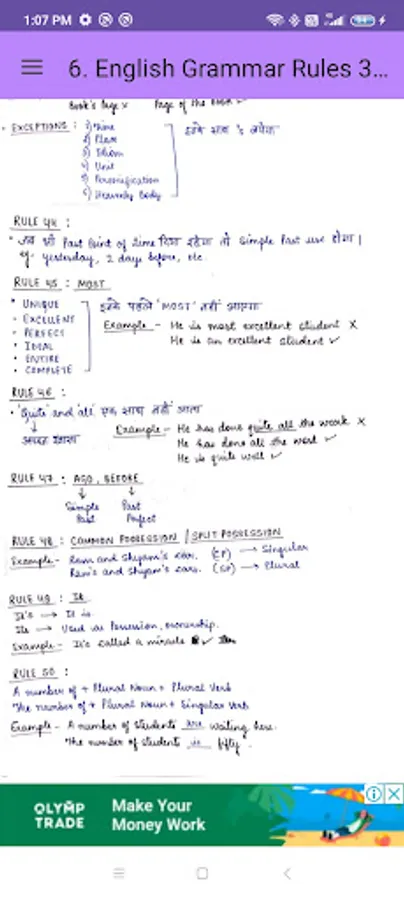 1:07 PM
6. English Grammar Rules 3...
Book's Page x Page of the Book ✓
• EXCEPTIONS : 1) Time
2) Place
3) Idiom
4) Unit
5) Personification
6) Heavenly Body
इनके साथ 's लगेगा
RULE 44 :
• जब भी Past Point of time दिया रहेगा तो Simple Past use होगा।
eg- yesterday, 2 days before, etc.
RULE 45 : MOST
• UNIQUE
• EXCELLENT
• PERFECT
• IDEAL
• ENTIRE
• COMPLETE
इनके पहले 'MOST' नहीं आएगा
Example - He is most excellent student X
He is an excellent student ✓
RULE 46 :
• 'Quite' and 'all' एक साथ नहीं आता
Example - He has done quite all the work X
He has done all the work ✓
He is quite well ✓
RULE 47 : AGO, BEFORE
Simple Past
Past Perfect
RULE 48 : COMMON POSSESSION / SPLIT POSSESSION
Example - Ram and Shyam's car. (CP) → Singular
Ram's and Shyam's cars. (SP) → Plural
RULE 49 : It
It's → It is
Its → Used as Possession, ownership.
Example - It's called a miracle ✓
RULE 50 :
A number of + Plural Noun + Plural Verb
The number of + Plural Noun + Singular Verb
Example - A number of students are waiting here.
The number of students is fifty.
OLYMP TRADE
Make Your
Money Work